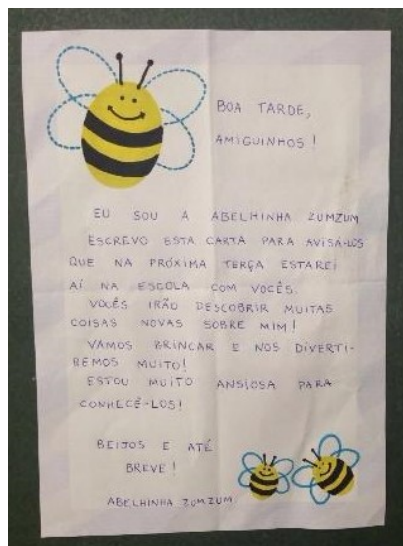 BOA TARDE,
AMIGUINHOS!
EU SOU A ABELHINHA ZUMZUM
ESCREVO ESTA CARTA PARA AVISÁ-LOS
QUE NA PRÓXIMA TERÇA ESTAREI
AÍ NA ESCOLA COM VOCÊS.
VOCÊS IRÃO DESCOBRIR MUITAS
COISAS NOVAS SOBRE MIM!
VAMOS BRINCAR E NOS DIVERTI-
REMOS MUITO!
ESTOU MUITO ANSIOSA PARA
CONHECÊ-LOS!
BEIJOS E ATÉ
BREVE!
ABELHINHA ZUMZUM